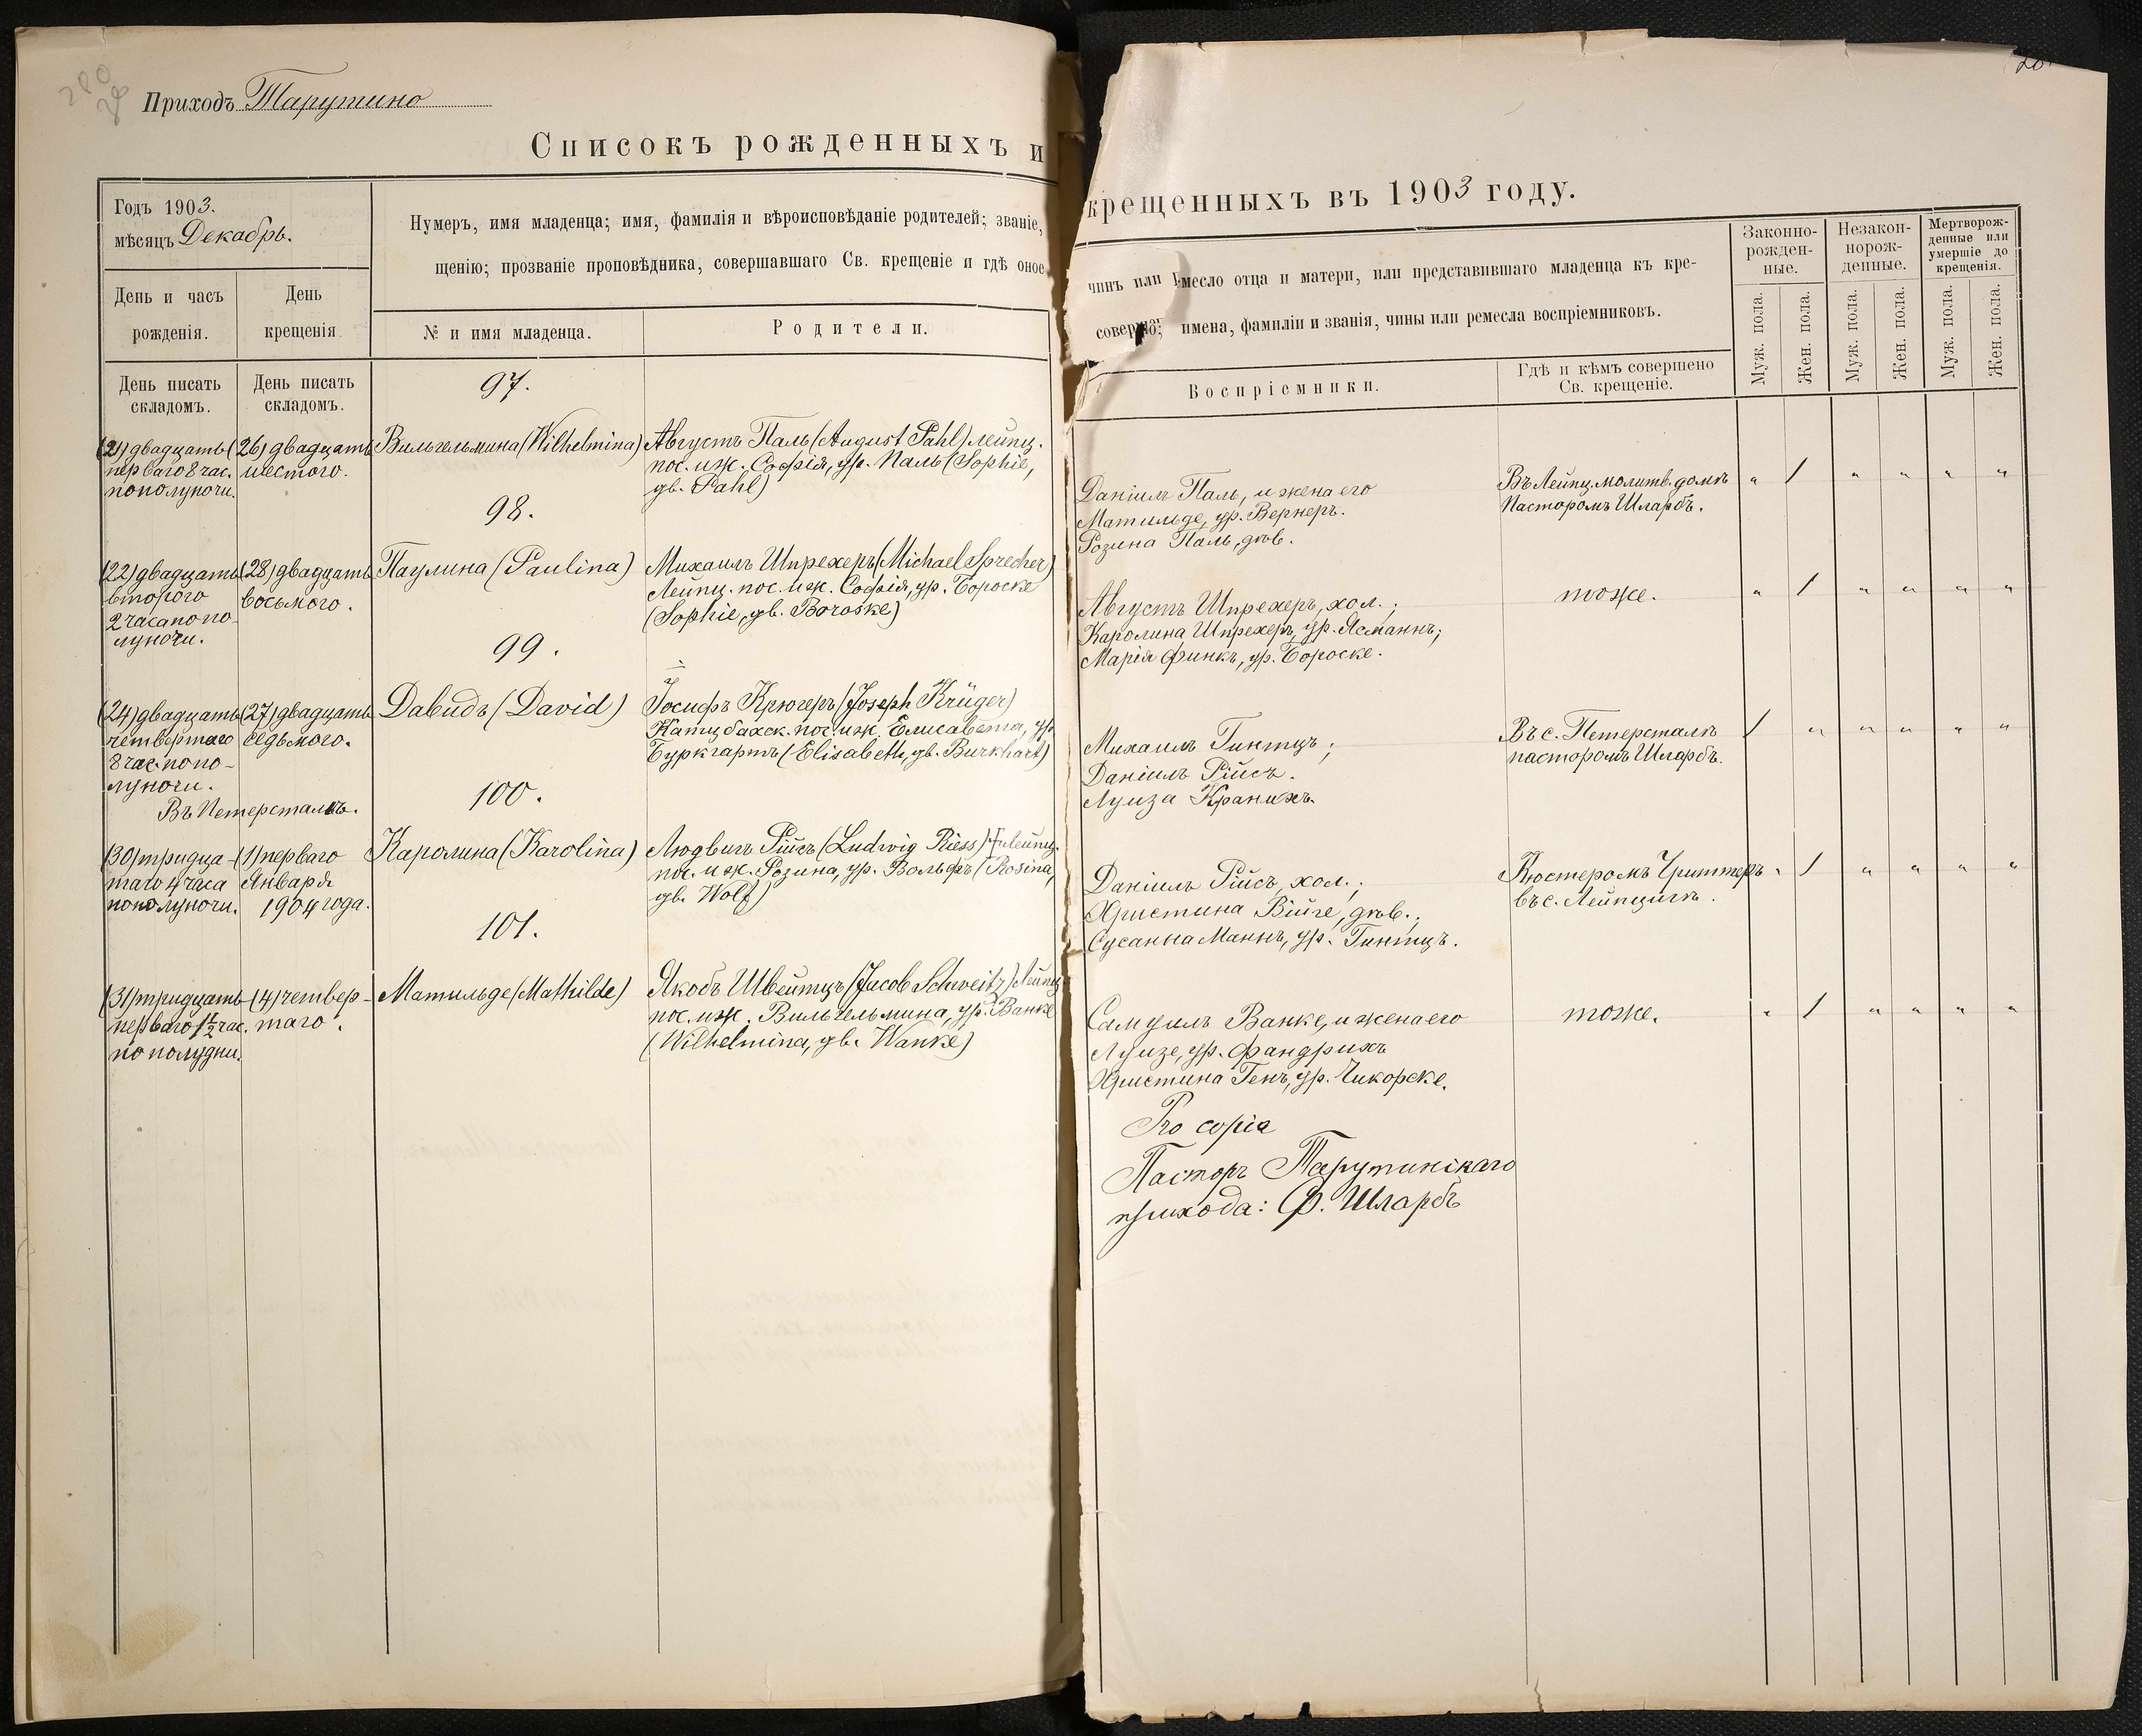 Приходъ Тарутино
Списокъ рожденныхъ и
крещенныхъ въ 1903 году.
Годъ 1903.
мѣсяцъ Декабрь.
День и часъ
рожденія.
День
крещенія
Нумеръ, имя младенца; имя, фамилія и вѣроисповѣданіе родителей; званіе,
щенію; прозваніе проповѣдника, совершавшаго Св. крещеніе и гдѣ оное
№ и имя младенца.
Родители.
День писать
складомъ.
День писать
складомъ.
97.
(21) двадцать
перваго 8 час.
пополуночи.
(26) двадцать
шестого.
Вильгельмина (Wilhelmina)
Августъ Паль (August Pahl) лейпц.
пос. и ж. Софія, ур. Паль (Sophie,
gb. Pahl)
98.
(22) двадцать
второго
2 часа попо-
луночи.
(28) двадцать
восьмого.
Паулина (Paulina)
Михаилъ Шпрехеръ (Michael Sprecher)
Лейпц. пос. и ж. Софія, ур. Бороске
(Sophie, gb. Boroske)
99.
(24) двадцать
четвертаго
8 час. попо-
луночи.
Въ Петерсталѣ.
(27) двадцать
седьмого.
Давидъ (David)
Іосифъ Крюгеръ (Joseph Krüger)
Катцбахск. пос. и ж. Елисавета, ур.
Буркгартъ (Elisabeth, gb. Burkhart)
100.
(30) тридца-
таго 4 часа
пополуночи.
(1) перваго
Января
1904 года.
Каролина (Karolina)
Людвигъ Рійсъ (Ludwig Riess) Лейпц.
пос. и ж. Розина, ур. Вольфъ (Rosina,
gb. Wolf)
101.
(31) тридцать
перваго 1½ час.
по полудни.
(4) четвер-
таго.
Матильде (Mathilde)
Якобъ Швейтцъ (Jacob Schweitz) Лейпц
пос. и ж. Вильгельмина, ур. Ванке
(Wilhelmina, gb. Wanke)
чинъ или месло отца и матери, или представившаго младенца къ кре-
имена, фамиліи и званія, чины или ремесла воспріемниковъ.
Воспріемники.
Гдѣ и кѣмъ совершено
Св. крещеніе.
Законно-
рожден-
ные.
Незакон-
норож-
денные.
Мертворож-
денные или
умершіе до
крещенія.
Муж. пола.
Жен. пола.
Муж. пола.
Жен. пола.
Муж. пола.
Жен. пола.
Даніилъ Паль, и жена его
Матильде, ур. Вернеръ.
Розина Паль, дѣв.
Въ Лейпц. молитв. домѣ
Пасторомъ Шларбъ.
" / " " " "
Августъ Шпрехеръ, хол.;
Каролина Шпрехеръ, ур. Ясманнъ;
Марія Финкъ, ур. Бороске.
тоже.
" / " " " "
Михаилъ Гинтцъ;
Даніилъ Рійсъ.
Луиза Кранихъ.
Въ с. Петерсталѣ
пасторомъ Шларбъ.
/ " " " " "
Даніилъ Рійсъ, хол.;
Христина Війге, дѣв.;
Сусанна Маннъ, ур. Гинтцъ.
Кюстеромъ Чриттеръ
въ с. Лейпцигѣ.
" / " " " "
Самуилъ Ванке, и жена его
Луизе, ур. Фандрихъ
Христина Генъ, ур. Чикорске.
тоже.
" / " " " "
Pro copia
Пасторъ Тарутинскаго
прихода: Ф. Шларбъ